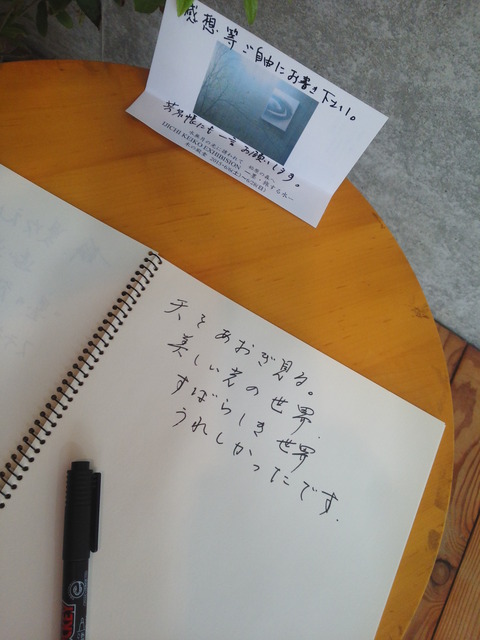 感想・等ご自由にお書き下さい。
芳名帳にも一言お願いします。
IJICHI KEIKO EXHIBISION
天をあおぎ見る。
美しい光の世界.
すばらしき世界
うれしかったです.